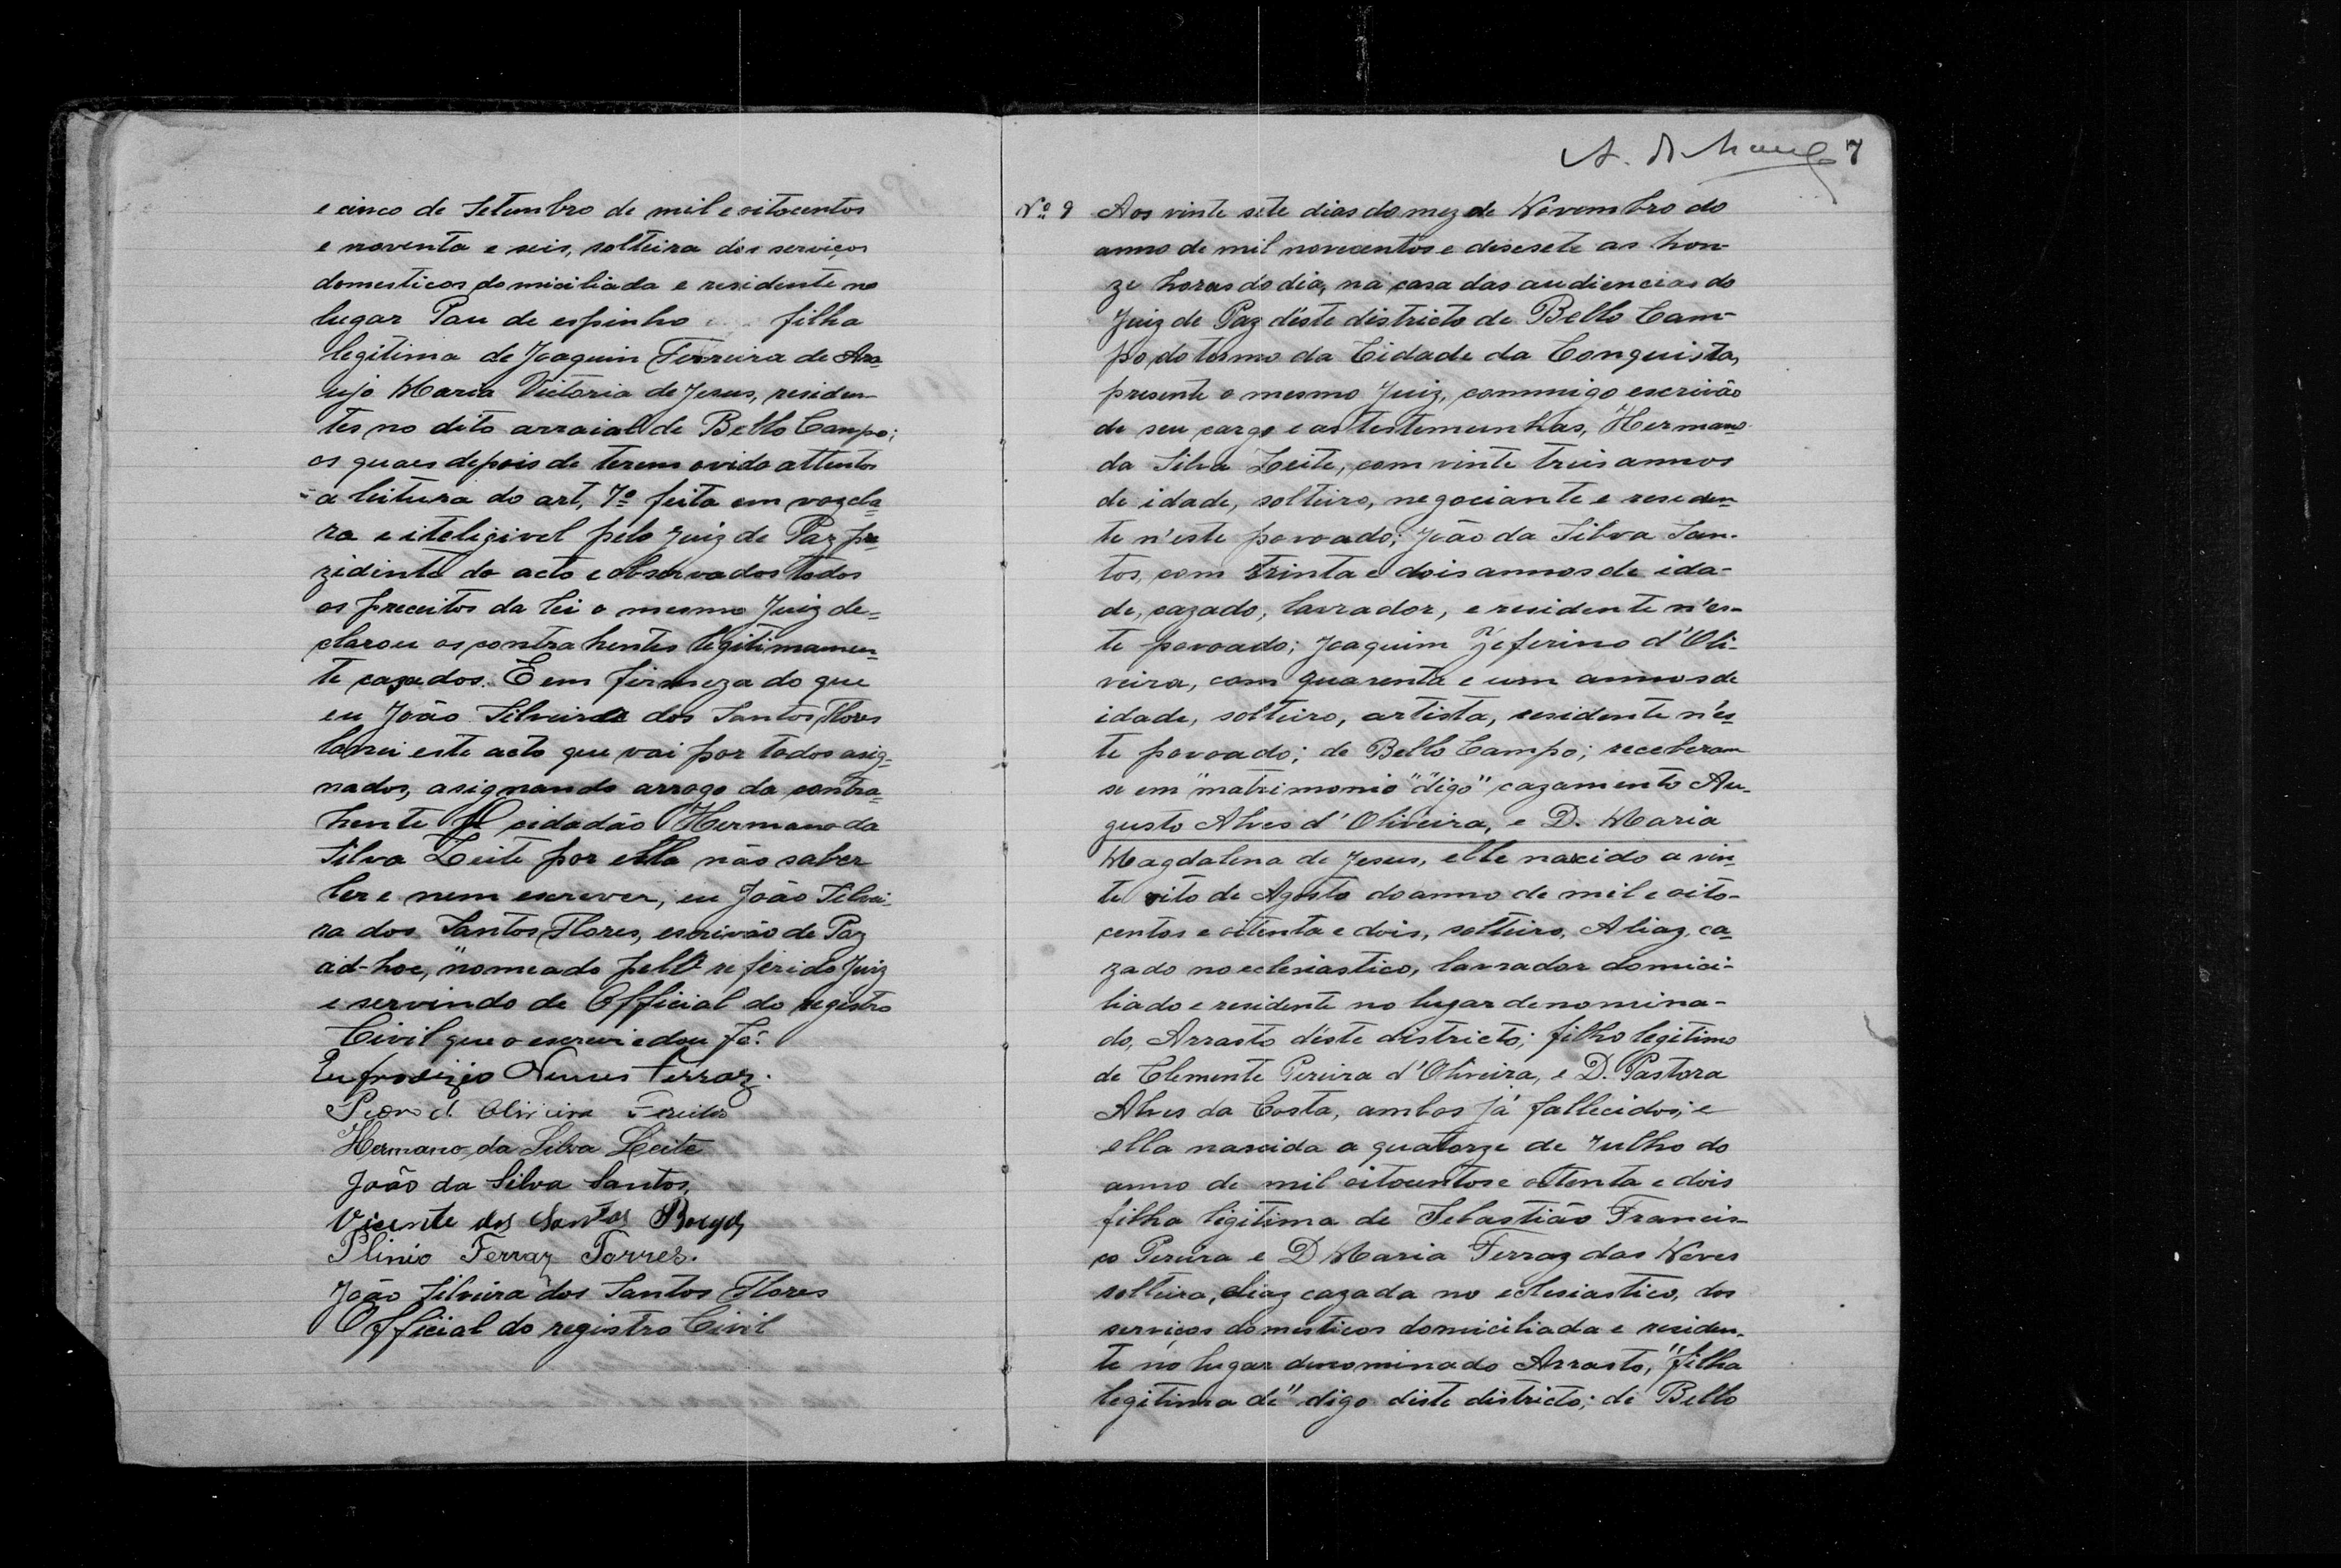 e cinco de Setembro de mil e oitocentos
e noventa e seis, solteira dos serviços
domesticos domiciliada e residente no
lugar Pau de espinho filha
legitima de Joaquim Ferreira de Ara=
ujo Maria Victoria de Jesus, residen-
tes no dito arraial de Bello Campo;
os quaes depois de terem ovido attentos
a leitura do art, 7º feita em voz cla=
ra e iteligivel pelo Juiz de Paz pre=
zidente do acto e observados todos
os preceitos da lei o mesmo Juiz de=
clarou os contrahentes legitimamen=
te cazados. E em firmeza do que
eu João Silveira dos Santos Flores
lavrei este acto que vai por todos asig=
nados, asignando arrogo da contra=
hente o cidadão Hermano da
Silva Leite por ella não saber
ler e nem escrever, eu João Silvei-
ra dos Santos Flores, escrivão de Paz
ad-hoc, nomeado pelo referido Juiz
e servindo de Official do registro
Civil que o escrevi e dou fé.
Eufrozizio Nunes Ferraz.
Pedro d Oliveira Freitas
Hermano da Silva Leite
João da Silva Santos,
Vicente dos Santos
Plinio Ferraz Torres.
João Silveira dos Santos Flores
Official do registro Civil
7
Nº 9 Aos vinte sete dias do mez de Novembro do
anno de mil novecentos e desesete as hon-
ze horas do dia, na casa das audiencias do
Juiz de Paz dèste districto de Bello Cam-
po do termo da Cidade da Conquista,
presente o mesmo Juiz, commigo escrivão
de seu cargo e as testemunhas, Hermano
da Silva Leite, com vinte treis annos
de idade, solteiro, negociante e residen=
te n'este povoado; João da Silva San-
tos, com trinta e dois annos de ida-
de, cazado, lavrador, e residente n'es-
te povoado; Joaquim Zeferino d'Oli-
veira, com quarenta e um annos de
idade, solteiro, artista, residente n'es=
te povoado; de Bello Campo; receberam
se em "matrimonio" "digo" cazamento Au-
gusto Alves d'Oliveira, e D. Maria
Magdalena de Jesus, elle nascido a vin=
te oito de Agosto do anno de mil e oito-
centos e oitenta e dois, solteiro, Aliaz, ca=
zado no eclesiastico, lavrador domici-
liado e residente no lugar denomina-
do, Arrasto dèste districto; filho legitimo
de Clemente Pereira d'Oliveira, e D. Pastora
Alves da Costa, ambos já fallecidos; e
ella nascida a quatorze de Julho do
anno de mil oitocentos e oitenta e dois
filha legitima de Sebastião Francis-
co Pereira e D Maria Ferraz das Neves
solteira, aliaz cazada no eclesiastico, dos
serviços domesticos domiciliada e residen-
te no lugar denominado Arrasto, "filha
legitima de" digo dèste districto; de Bello